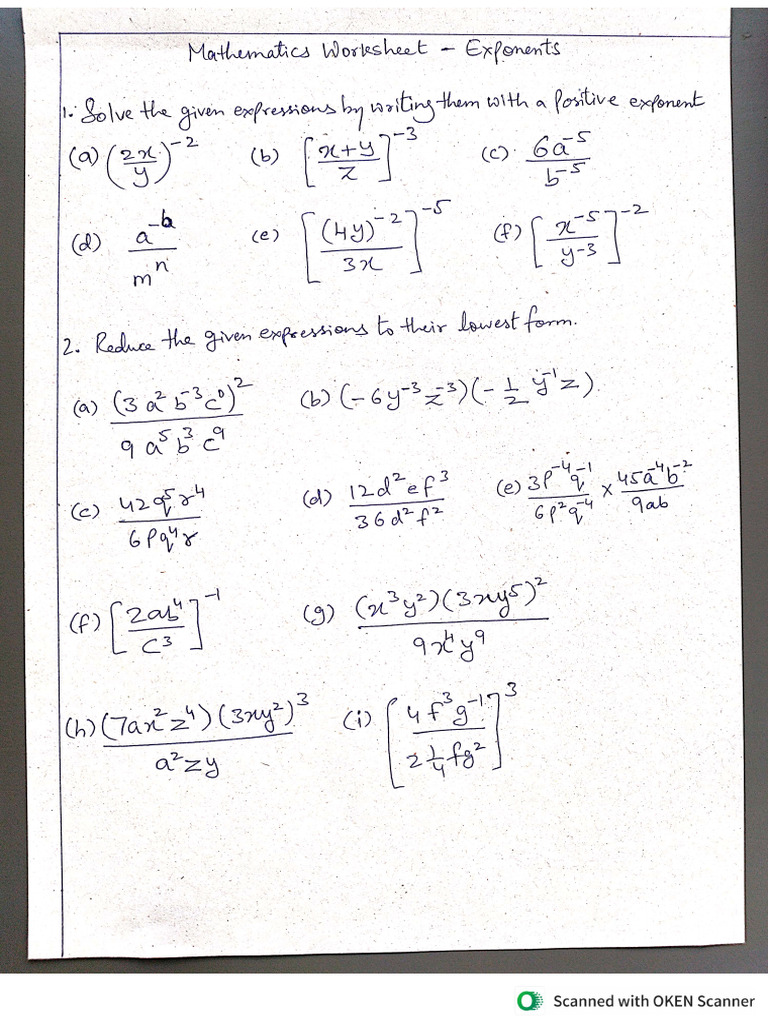 Mathematics Worksheet - Exponents
1. Solve the given expressions by writing them with a positive exponent
(a) (2x/y)⁻² (b) [x+y/z]⁻³ (c). 6a⁻⁵/b⁻⁵
(d) a⁻ᵇ/mⁿ (e) [(4y)⁻²/3x]⁻⁵ (f) [x⁻⁵/y⁻³]⁻²
2. Reduce the given expressions to their lowest form.
(a) (3a²b⁻³c⁰)²/9a⁵b³c⁹ (b) (-6y⁻³z⁻³)(-1/2 y⁻¹z)
(c) 42q⁵r⁴/6pq⁴r (d) 12d²ef³/36d²f² (e) 3p⁻⁴q⁻¹/6p²q⁻⁴ × 45a⁻⁴b⁻²/9ab
(f) [2ab⁴/c³]⁻¹ (g) (x³y²)(3xy⁵)²/9x⁴y⁹
(h) (7ax²z⁴)(3xy²)³/a²zy (i) [4f³g⁻¹/2 1/4 fg²]³
Scanned with OKEN Scanner